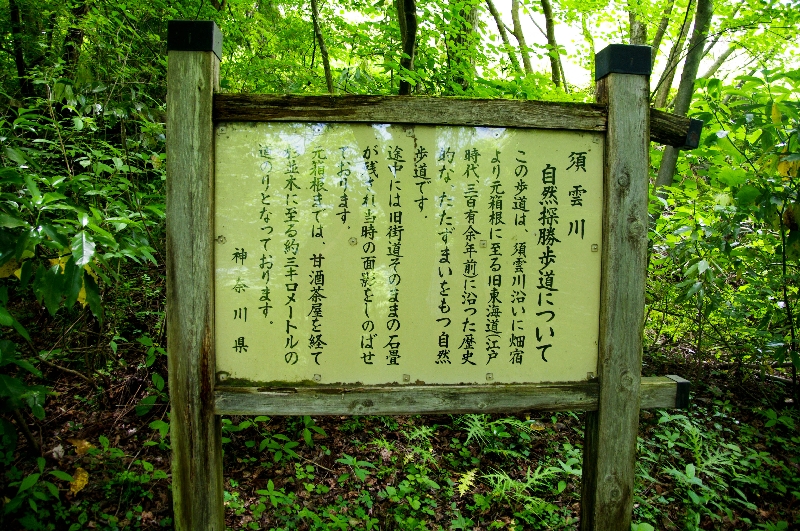 須雲川
自然探勝歩道について
この歩道は、須雲川沿いに畑宿
より元箱根に至る旧東海道(江戸
時代、三百有余年前)に沿った歴史
的な、たたずまいをもつ自然
歩道です。
途中には旧街道そのままの石畳
が残され当時の面影をしのばせ
ております。
元箱根までは、甘酒茶屋を経て
杉並木に至る約三キロメートルの
道のりとなっております。
神奈川県